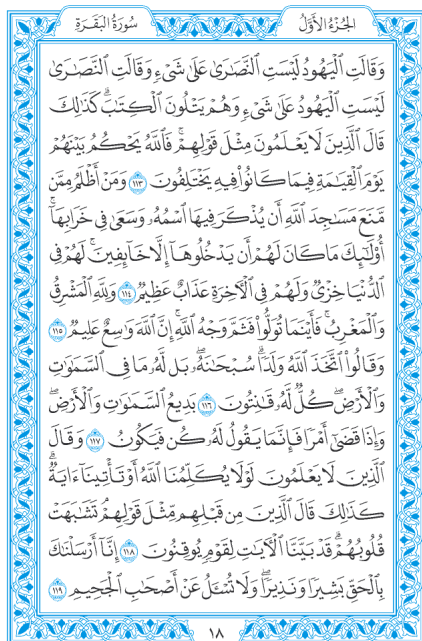 الجُزْءُ الأَوَّلُ
سُورَةُ البَقَرَةِ
وَقَالَتِ ٱلۡيَهُودُ لَيۡسَتِ ٱلنَّصَٰرَىٰ عَلَىٰ شَيۡءٖ وَقَالَتِ ٱلنَّصَٰرَىٰ
لَيۡسَتِ ٱلۡيَهُودُ عَلَىٰ شَيۡءٖ وَهُمۡ يَتۡلُونَ ٱلۡكِتَٰبَۗ كَذَٰلِكَ
قَالَ ٱلَّذِينَ لَا يَعۡلَمُونَ مِثۡلَ قَوۡلِهِمۡۚ فَٱللَّهُ يَحۡكُمُ بَيۡنَهُمۡ
يَوۡمَ ٱلۡقِيَٰمَةِ فِيمَا كَانُواْ فِيهِ يَخۡتَلِفُونَ ١١٣ وَمَنۡ أَظۡلَمُ مِمَّن
مَّنَعَ مَسَٰجِدَ ٱللَّهِ أَن يُذۡكَرَ فِيهَا ٱسۡمُهُۥ وَسَعَىٰ فِي خَرَابِهَآۚ
أُوْلَٰٓئِكَ مَا كَانَ لَهُمۡ أَن يَدۡخُلُوهَآ إِلَّا خَآئِفِينَۚ لَهُمۡ فِي
ٱلدُّنۡيَا خِزۡيٞ وَلَهُمۡ فِي ٱلۡأٓخِرَةِ عَذَابٌ عَظِيمٞ ١١٤ وَلِلَّهِ ٱلۡمَشۡرِقُ
وَٱلۡمَغۡرِبُۚ فَأَيۡنَمَا تُوَلُّواْ فَثَمَّ وَجۡهُ ٱللَّهِۚ إِنَّ ٱللَّهَ وَٰسِعٌ عَلِيمٞ ١١٥
وَقَالُواْ ٱتَّخَذَ ٱللَّهُ وَلَدٗاۗ سُبۡحَٰنَهُۥۖ بَل لَّهُۥ مَا فِي ٱلسَّمَٰوَٰتِ
وَٱلۡأَرۡضِۖ كُلّٞ لَّهُۥ قَٰنِتُونَ ١١٦ بَدِيعُ ٱلسَّمَٰوَٰتِ وَٱلۡأَرۡضِۖ
وَإِذَا قَضَىٰٓ أَمۡرٗا فَإِنَّمَا يَقُولُ لَهُۥ كُن فَيَكُونُ ١١٧ وَقَالَ
ٱلَّذِينَ لَا يَعۡلَمُونَ لَوۡلَا يُكَلِّمُنَا ٱللَّهُ أَوۡ تَأۡتِينَآ ءَايَةٞۗ
كَذَٰلِكَ قَالَ ٱلَّذِينَ مِن قَبۡلِهِم مِّثۡلَ قَوۡلِهِمۡۘ تَشَٰبَهَتۡ
قُلُوبُهُمۡۗ قَدۡ بَيَّنَّا ٱلۡأٓيَٰتِ لِقَوۡمٖ يُوقِنُونَ ١١٨ إِنَّآ أَرۡسَلۡنَٰكَ
بِٱلۡحَقِّ بَشِيرٗا وَنَذِيرٗاۖ وَلَا تُسۡـَٔلُ عَنۡ أَصۡحَٰبِ ٱلۡجَحِيمِ ١١٩
١٨